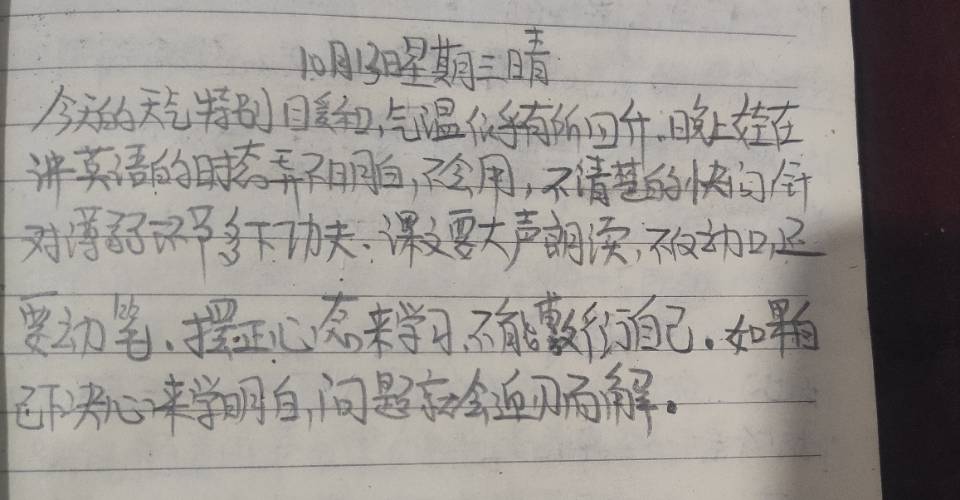 10月13日星期三晴
今天的天气特别日暖和,气温似乎有所回升.晚上在
讲英语的时态弄不明白,不会用,不清楚的快问,针
对薄弱环节多下功夫.课文要大声朗读,不仅动口,还
要动笔.摆正心态来学习.不能敷衍自己.如果自
己下决心来学明白,问题就会迎刃而解.